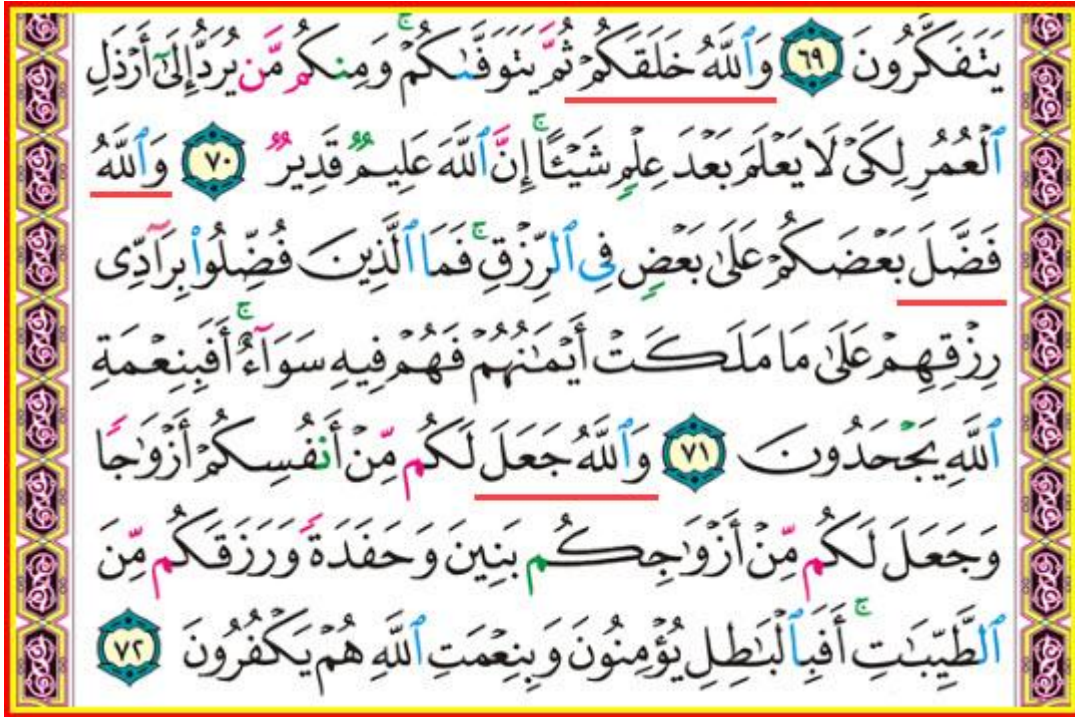 يَتَفَكَّرُونَ ٦٩ وَٱللَّهُ خَلَقَكُمْ ثُمَّ يَتَوَفَّىٰكُمْ ۚ وَمِنكُم مَّن يُرَدُّ إِلَىٰٓ أَرْذَلِ
ٱلْعُمُرِ لِكَىْ لَا يَعْلَمَ بَعْدَ عِلْمٍ شَيْـًٔا ۚ إِنَّ ٱللَّهَ عَلِيمٌ قَدِيرٌ ٧٠ وَٱللَّهُ
فَضَّلَ بَعْضَكُمْ عَلَىٰ بَعْضٍ فِى ٱلرِّزْقِ ۚ فَمَا ٱلَّذِينَ فُضِّلُوا۟ بِرَآدِّى
رِزْقِهِمْ عَلَىٰ مَا مَلَكَتْ أَيْمَـٰنُهُمْ فَهُمْ فِيهِ سَوَآءٌ ۚ أَفَبِنِعْمَةِ
ٱللَّهِ يَجْحَدُونَ ٧١ وَٱللَّهُ جَعَلَ لَكُم مِّنْ أَنفُسِكُمْ أَزْوَٰجًا
وَجَعَلَ لَكُم مِّنْ أَزْوَٰجِكُم بَنِينَ وَحَفَدَةً وَرَزَقَكُم مِّنَ
ٱلطَّيِّبَـٰتِ ۚ أَفَبِٱلْبَـٰطِلِ يُؤْمِنُونَ وَبِنِعْمَتِ ٱللَّهِ هُمْ يَكْفُرُونَ ٧٢